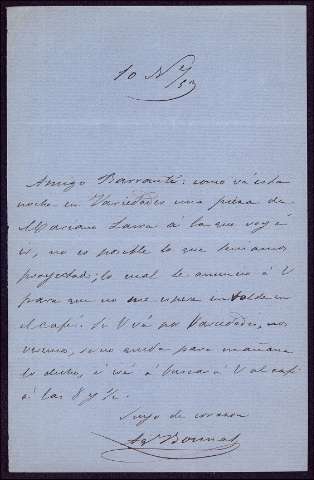 10 N e/52
Amigo Barrantes: como vá esta
noche en Variedades una pieza de
Mariano Larra á la que voy á
ir, no es posible lo que teniamos
proyectado; lo cual le anuncio á V
para que no me espere en balde en
el café. Si V vá por Variedades, nos
veremos, si no queda para mañana
lo dicho, é iré á buscar á V al café
á las 8 y ½.
Suyo de corazon